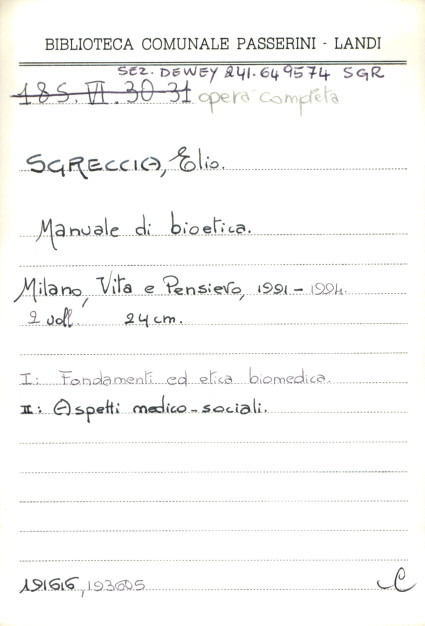 BIBLIOTECA COMUNALE PASSERINI - LANDI
SEZ. DEWEY 241.649574 SGR
185.VI.30-31 opera completa
SGRECCIA, Elio.
Manuale di bioetica.
Milano, Vita e Pensiero, 1991-1994.
2 voll. 24 cm.
I: Fondamenti ed etica biomedica.
II: Aspetti medico-sociali.
191616, 193605